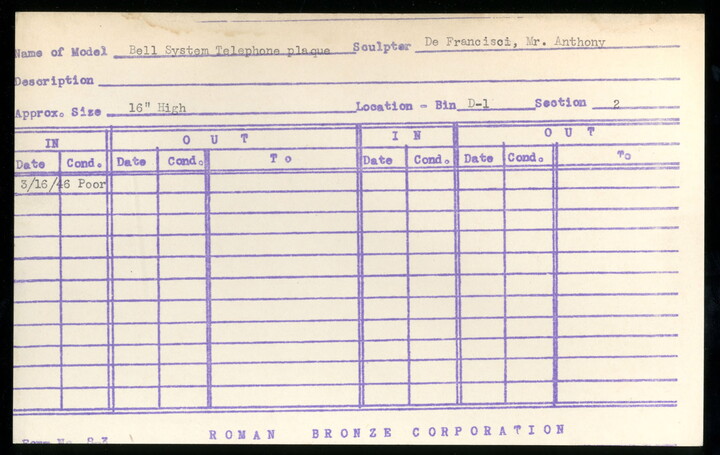 Name of Model Bell System Telephone plaque Sculpter De Francisci, Mr. Anthony
Description
Approx. Size 16" High Location - Bin D-1 Section 2
IN OUT IN OUT
Date Cond. Date Cond. To Date Cond. Date Cond. To
3/16/46 Poor
ROMAN BRONZE CORPORATION